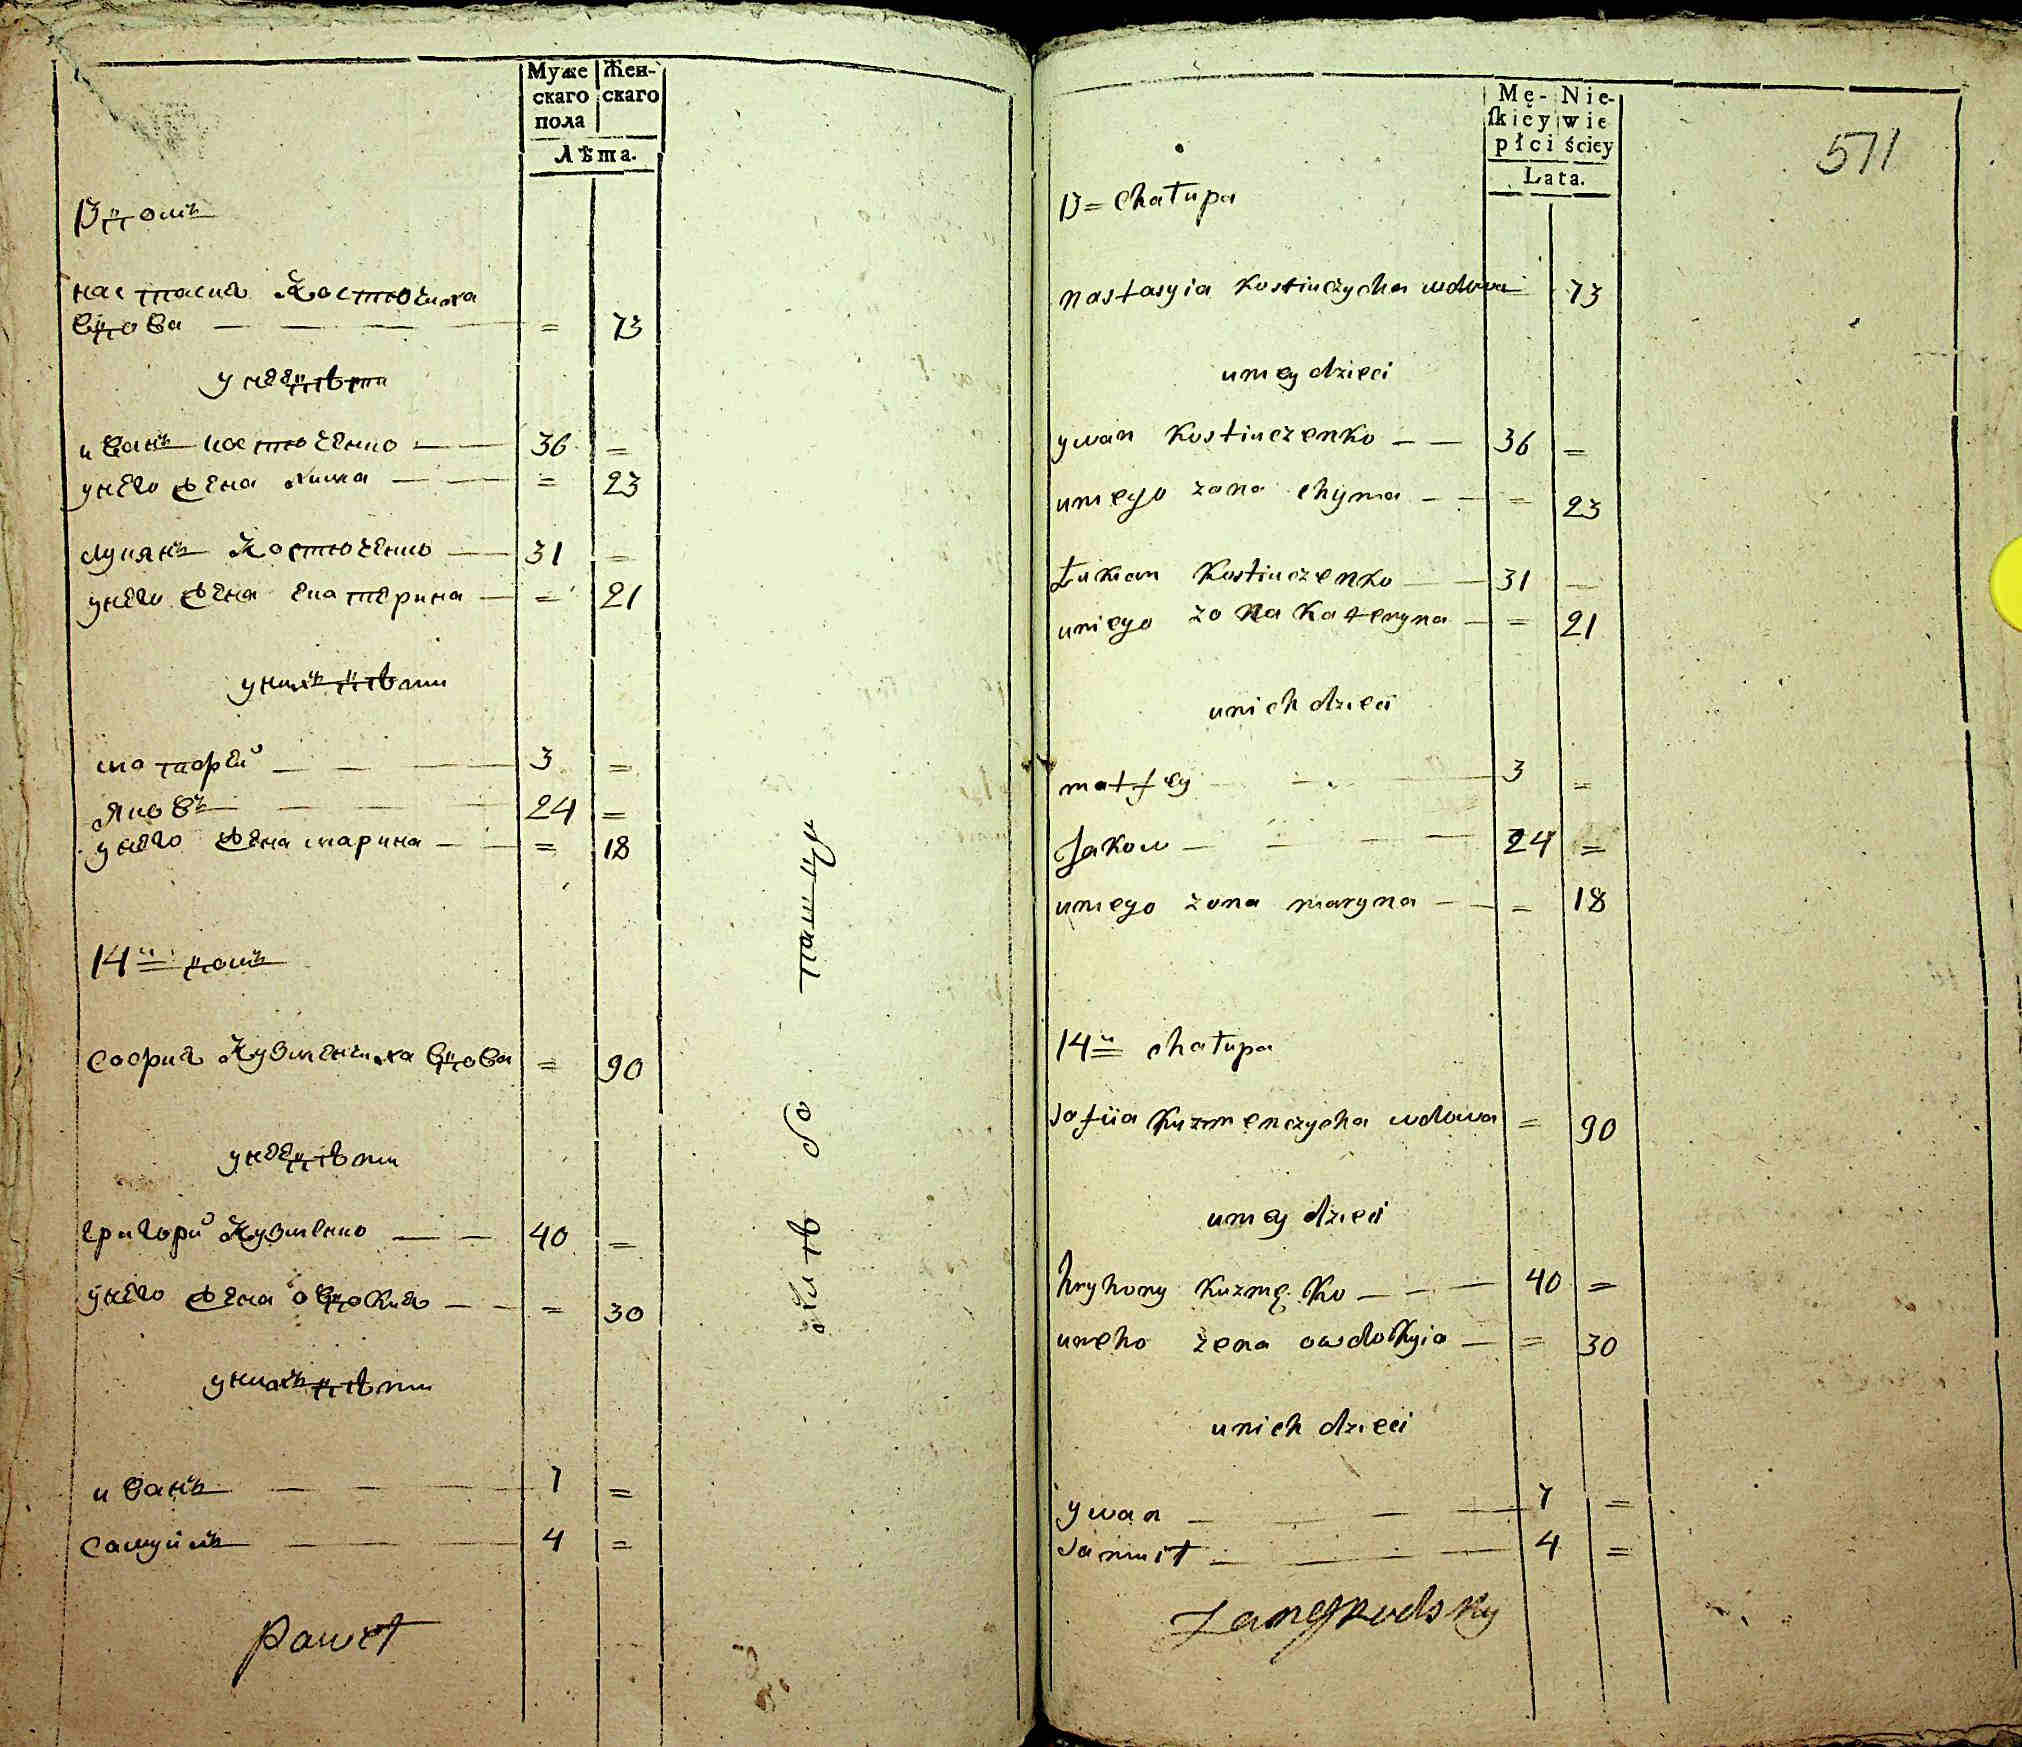 Муже
скаго
пола
Жен-
скаго
Лѣта.
13 домъ
настасия Костючиха
вдова — — — — = 73
у неё дѣти
иванъ костюченко — — 36 =
у него жена хима — — = 23
лукянъ Костюченко — — 31 =
у него жена екатерина — = 21
у нихъ дѣти
матфей — — — 3 =
яковъ — — — 24 =
у него жена марина — — = 18
14й домъ
софия Кузменчиха вдова = 90
у неё дѣти
григорий Кузменко — — 40 =
у него жена овдокия — — = 30
у нихъ дѣти
иванъ — — — — 7 =
самуйлъ — — — 4 =
Paweł
571
Mę-
skiey
płci
Nie-
wie
ściey
Lata.
13 = chałupa
nastasyia Kostiuczycha wdowa 73
u niey dzieci
ywan Kostiuczenko — — 36 =
u niego zona chyma — — = 23
Łukian Kostiuczenko — — 31 —
u niego zona Kateryna — = 21
u nich dzieci
matfey — — — 3 =
Jakow — — — — 24 =
u niego zona maryna — — = 18
14й chałupa
sofiia Kuzmenczycha wdowa = 90
u niey dzieci
hryhory Kuzmęko — — — 40 =
u neho zena owdokyia — = 30
u nich dzieci
ywan — — — — 7 =
samuił — — — — 4 =